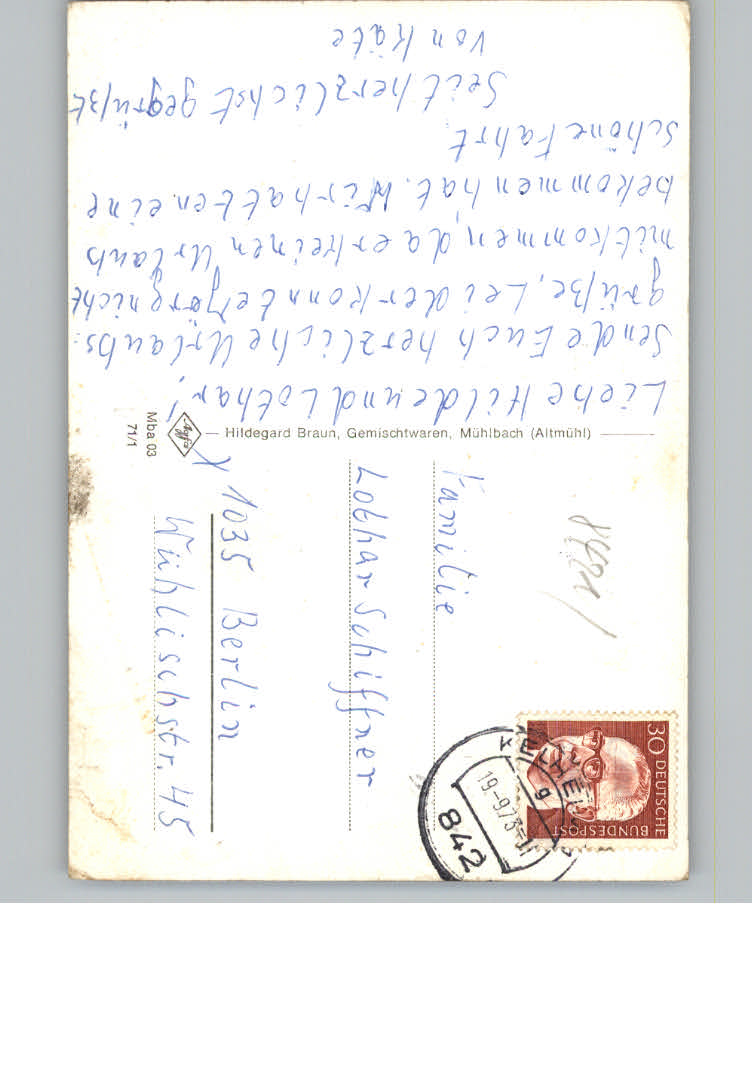 Liebe Hilde und Lothar!
Sende Euch herzliche Urlaubs-
grüße. Leider konnte Jörg nicht
mitkommen, da er keinen Urlaub
bekommen hat. Wir hatten eine
schöne Fahrt.
Seit herzlichst gegrüßt
von Käte
Hildegard Braun, Gemischtwaren, Mühlbach (Altmühl)
Agfa
Mba 03
71/1
Familie
Lothar Schiffner
X 1035 Berlin
Wühlischstr. 45
30 DEUTSCHE
BUNDESPOST
842 KELHEIM
19.-9.73
g